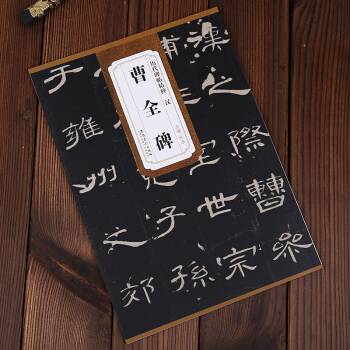 历代碑帖精粹
汉
曹全碑
漢之際曹參
室世宗
子孫
于雍州之郊